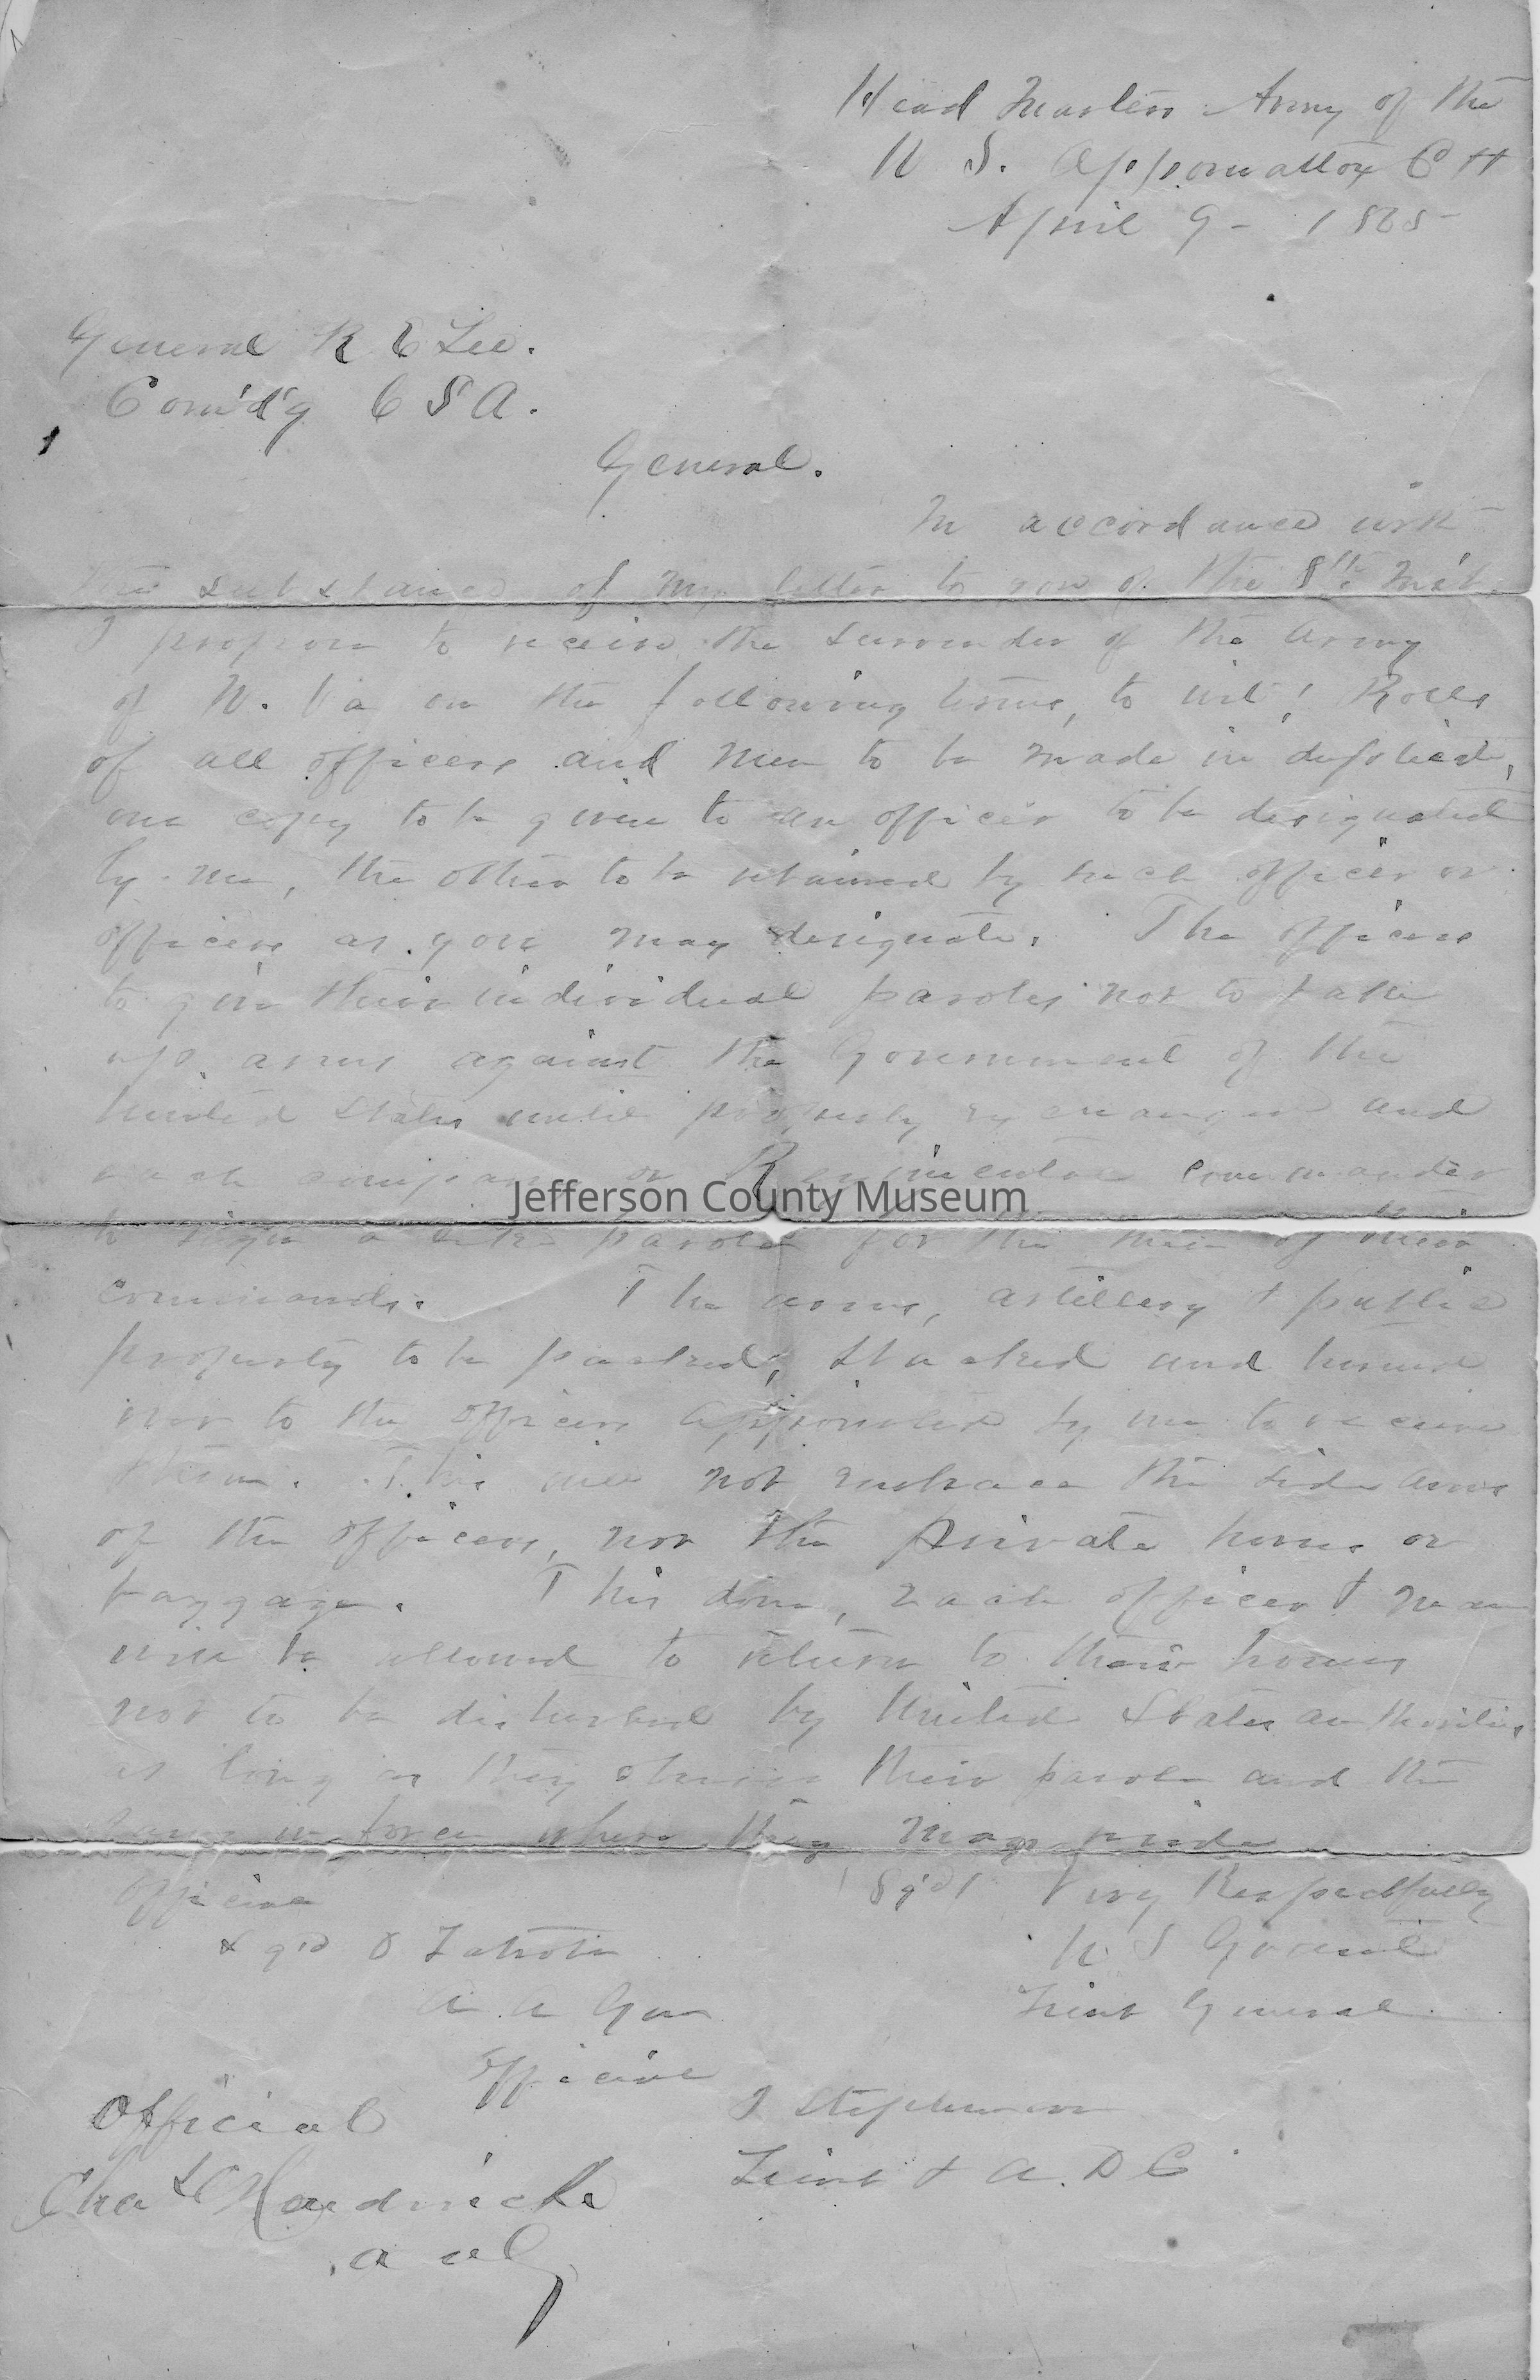 Head Quarters Army of the
U S. Appomattox C H
April 9 - 1865
General R E Lee.
Com'd'g C S A.
General.
In accordance with
the substance of my letter to you of the 8th Inst.
I propose to receive the surrender of the Army
of N. Va on the following terms, to wit; Rolls
of all officers and men to be made in duplicate,
one copy to be given to an officer to be designated
by me, the other to be retained by such officer or
officers as you may designate. The officers
to give their individual paroles not to take
up arms against the Government of the
United States until properly exchanged and
each company or Regimental commander
Jefferson County Museum
to sign a like parole for the men of their
commands. The arms, artillery & public
property to be packed, stacked and turned
over to the officers appointed by me to receive
them. This will not embrace the side arms
of the officers, nor the private horses or
baggage. This done, each officer & man
will be allowed to return to their homes
not to be disturbed by United States authorities
as long as they observe their parole and the
laws in force where they may reside
Official
Sg'd Very Respectfully
U S Grant
Lieut General
Sg'd O Latrobe
A A Gen
Official
J Stephenson
Lieut & A. D C
Official
Chas Hardwicke